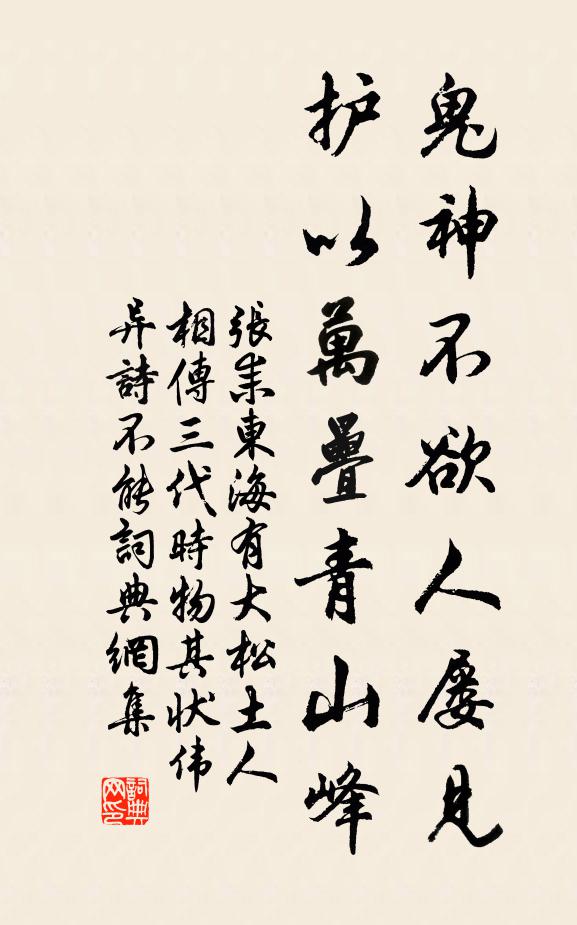 鬼神不欲人屢見
护以萬疊青山峰
張耒東海有大松土人
相傳三代時物其状伟
异詩不能詞典網集
詞典网印